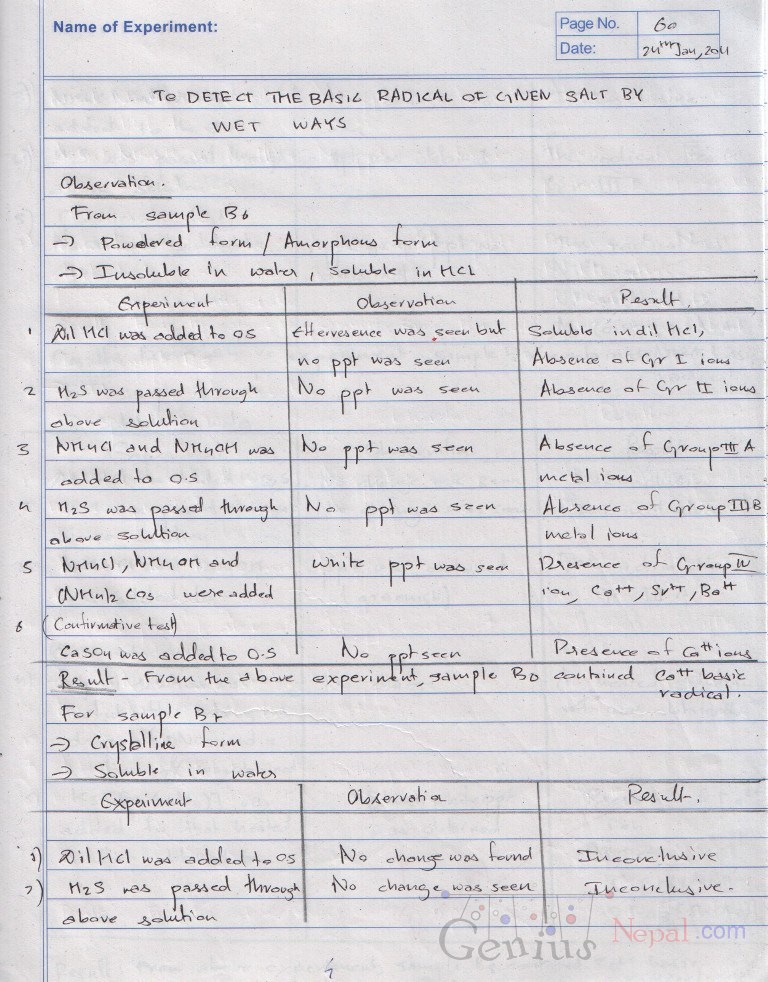 Name of Experiment:
Page No. 60
Date: 24th Jan, 2011
TO DETECT THE BASIC RADICAL OF GIVEN SALT BY
WET WAYS
Observation.
From sample B6
→ Powdered form / Amorphous form
→ Insoluble in water, soluble in HCl
Experiment Observation Result.
1 Dil HCl was added to OS Effervesence was seen but Soluble in dil HCl,
no ppt was seen Absence of Gr I ions
2 H2S was passed through No ppt was seen Absence of Gr II ions
above solution
3 NH4Cl and NH4OH was No ppt was seen Absence of Group III A
added to O.S metal ions
4 H2S was passed through No ppt was seen Absence of Group III B
above solution metal ions
5 NH4Cl, NH4OH and White ppt was seen Presence of Group IV
(NH4)2 CO3 were added ion, Ca++, Sr++, Ba++
6 (Confirmative test)
CaSO4 was added to O.S No ppt seen Presence of Ca++ ions
Result - From the above experiment, sample B6 contained Ca++ basic
radical.
For sample B7
→ Crystalline form
→ Soluble in water
Experiment Observation Result.
1) Dil HCl was added to OS No change was found Inconclusive
2) H2S was passed through No change was seen Inconclusive.
above solution
Genius Nepal.com